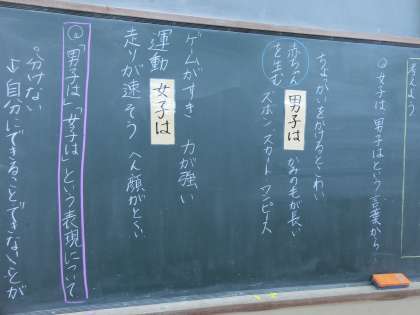 考えよう
女子は、男子はという言葉から
ちょっかいをかけるとこわい
赤ちゃん
を生む
男子は
かみの毛が長い
ズボン スカート ワンピース
ゲームがすき 力が強い
運動
女子は
走りが速そう へん顔がとくい
「男子は」「女子は」という表現について
分けない
自分にできることできないことが